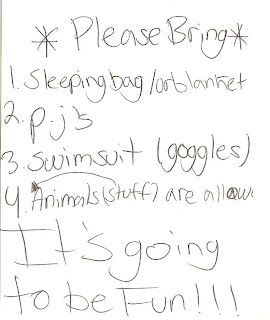 * Please Bring *
1. Sleeping bag/or blanket
2. p.j's
3. Swimsuit (goggles)
4. Animals (stuff) are allow
It's going
to be Fun!!!